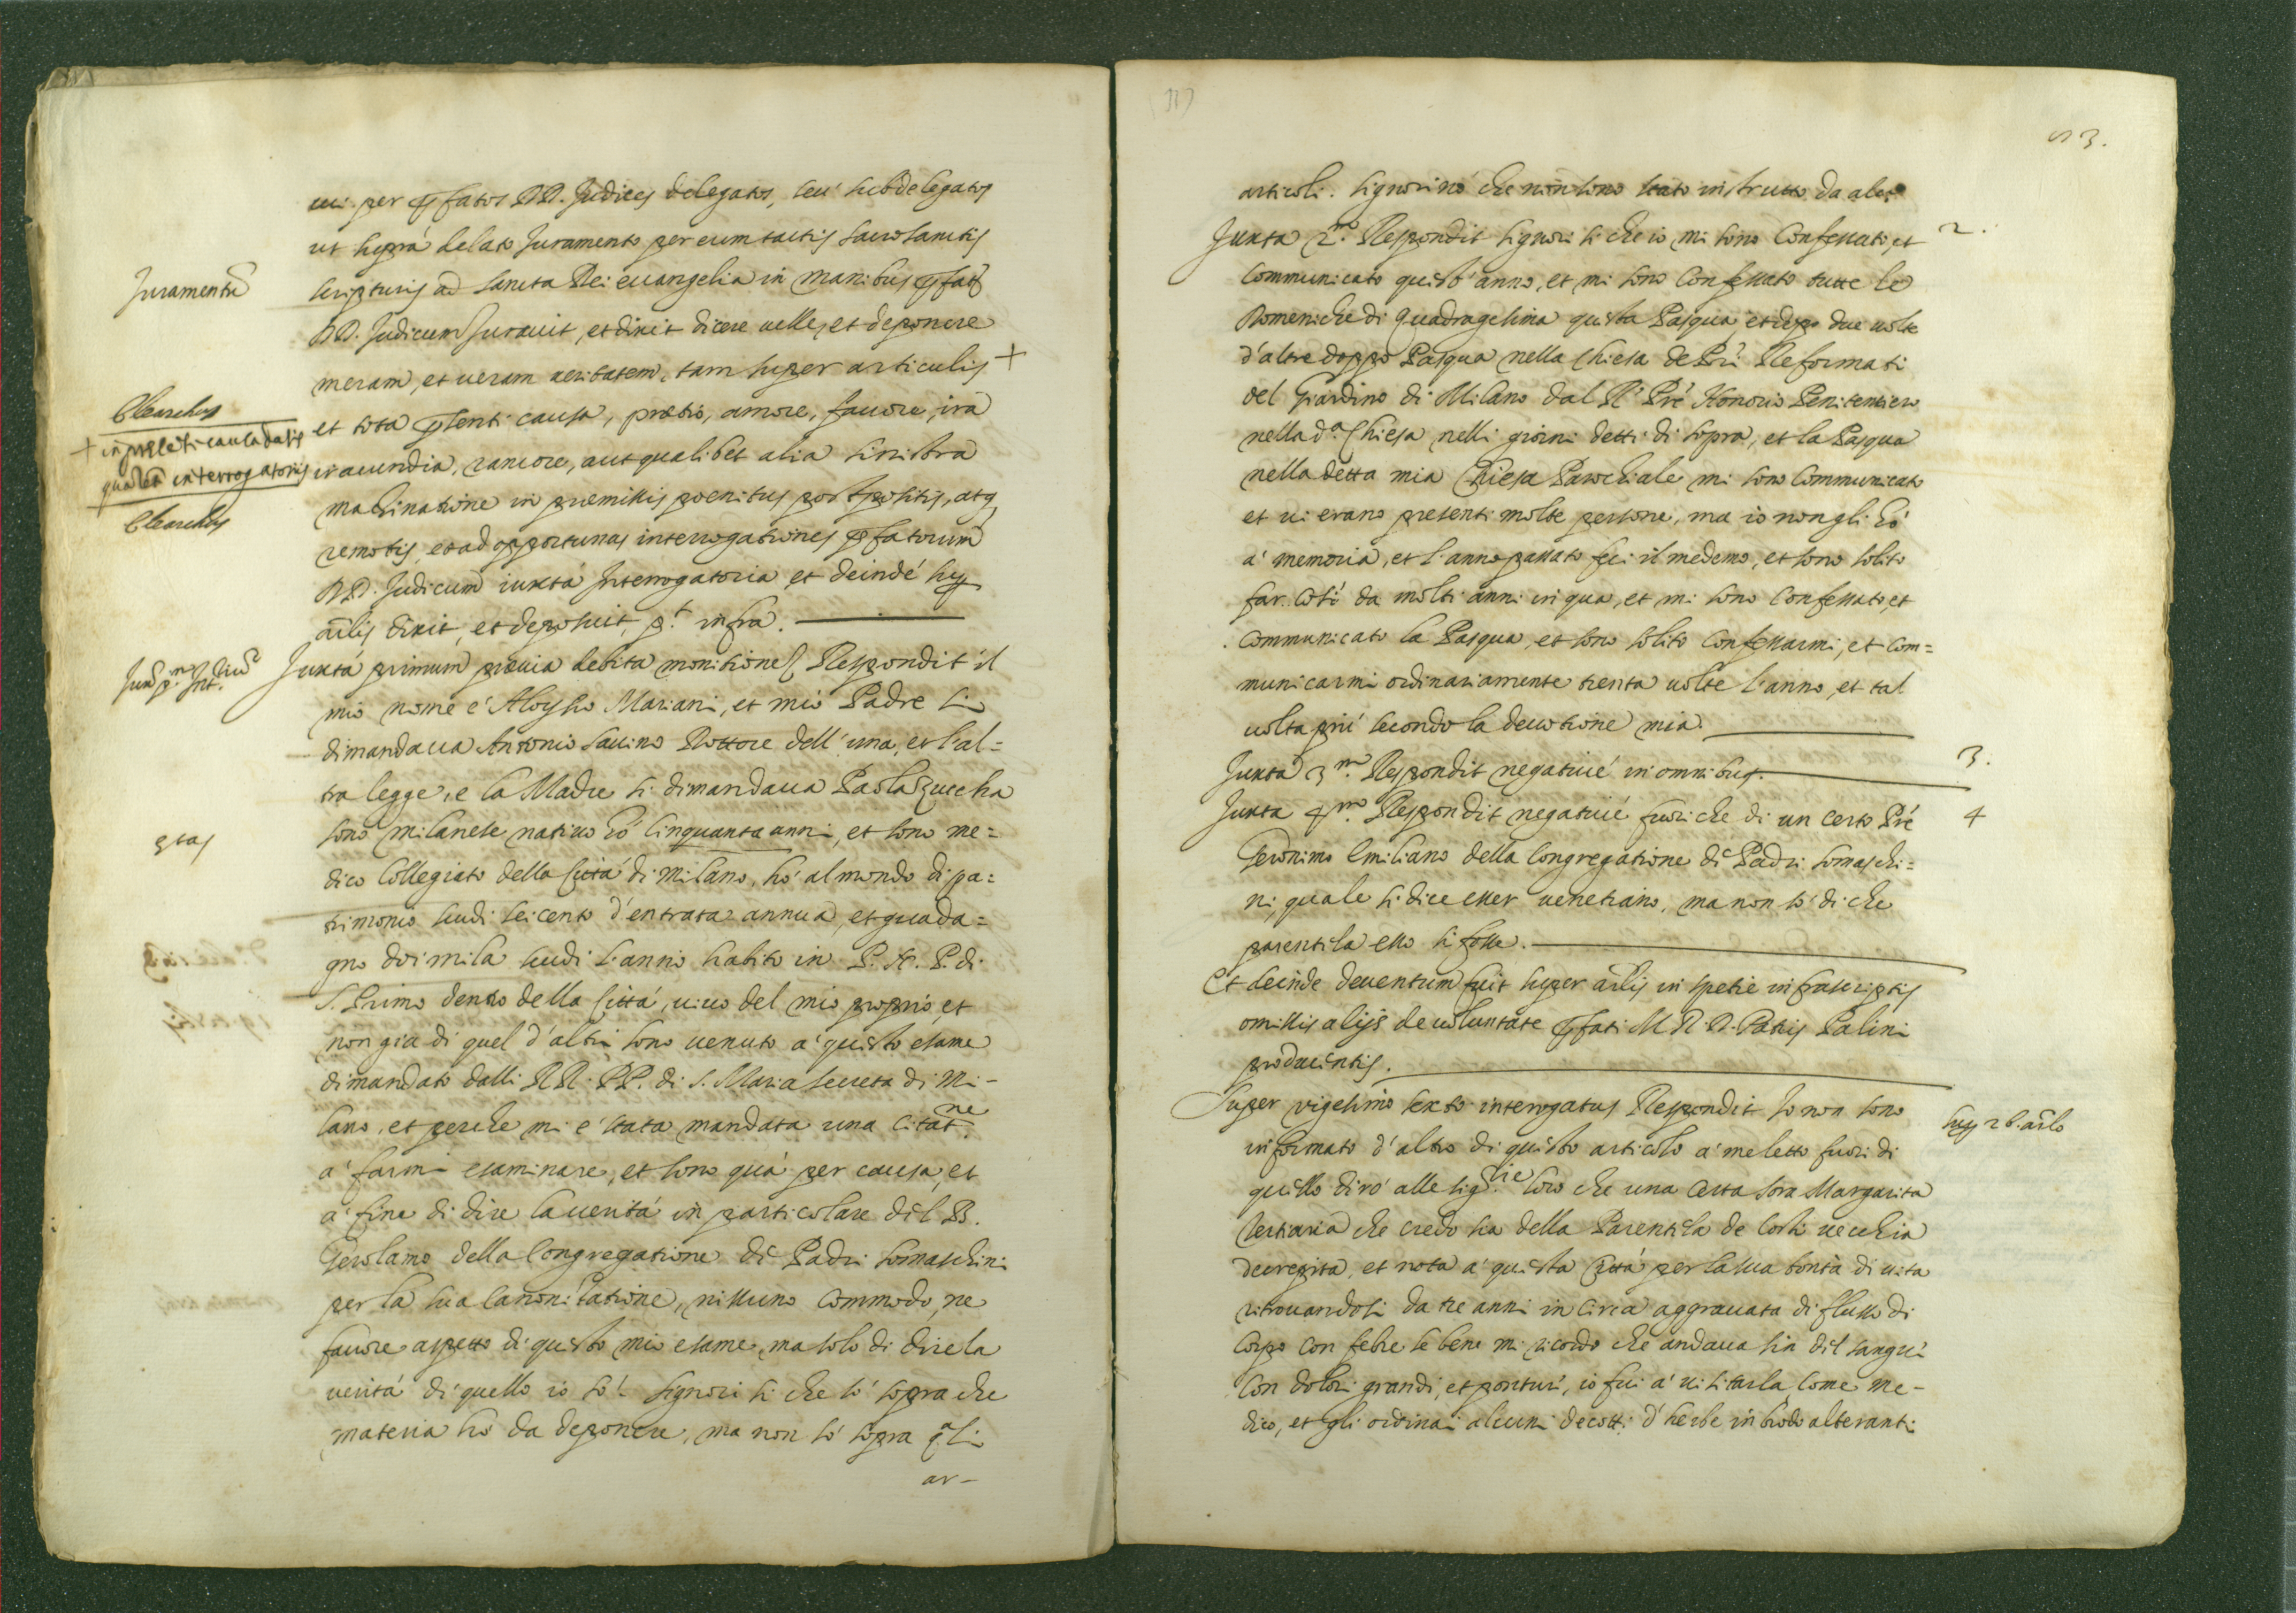 cui per prefatos DD. Judices delegatos, seu subdelegatos
ut suprà delato Juramento per eum tactis sacrosanctis
Juramentū
scripturis ad sancta Dei euangelia in manibus prefat.
DD. Judicum Jurauit, et dixit dicere uelle, et deponere
meram, et ueram ueritatem, tam super articulis +
Clearchus
+ in presēti causa datis
quā ēt interrogatorijs
Clearchus
et tota presenti causa, pretio, amore, fauore, irā
iracundia, rancore, aut qualibet alia sinistra
machinatione in premissis poenitus postpositis, atq,
remotis, et ad opportunas interrogationes prefatorum
DD. Judicum iuxtà Interrogatoria et deindè sup.
arlis dixit, et deposuit, pt. infra.
Jux. p.m Int.
Juxtà primum preuia debita monitione Respondit il
mio nome è Aloysio Mariani, et mio Padre si
dimandaua Antonio Sauino Dottore dell'una, et l'al=
tra legge, e la Madre si dimandaua Paola Zuccha
etas
sono milanese natiuo hò cinquanta anni, et sono me=
dico Collegiato della Città di Milano, hò al mondo di pa=
trimonio scudi seicento d'entrata annua, et guada=
gno doi mila scudi l'anno habito in P. N. P. di
S. Primo dentro della Città, uiuo del mio proprio, et
non già di quel d'altri sono uenuto à questo esame
dimandato dalli RR. PP. di S. Maria secreta di Mi-
lano, et perche mi è stata mandata una citat.ne
à farmi esaminare, et sono quà per causa, et
à fine di dire la uerità in particolare del B.
Gerolamo della Congregatione de Padri Somaschini
per la sua Canonizatione, nissuno commodo, ne
fauore aspetto di questo mio esame, ma solo di dire la
uerità di quello io sò. Signori si che sò sopra che
materia hò da deponere, ma non sò sopra qali
ar-
53.
articoli. Signori nò che non sono stato instrutto da alc.
Juxta 2.m Respondit signori si che io mi sono Confessato, et
2.
Communicato quest'anno, et mi sono Confessato tutte le
Domeniche di Quadragesima questa Pasqua et dopo due uolte
d'altre doppo Pasqua nella Chiesa de Pri Reformati
del Giardino di Milano dal R. Prè Honorio Penitentiero
nella d.a Chiesa nelli giorni detti di sopra, et la Pasqua
nella detta mia Chiesa Parochiale mi sono Communicato
et ui erano presenti molte persone, ma io non gli hò
à memoria, et l'anno passato feci il medemo, et sono solito
far così da molti anni in qua, et mi sono Confessato, et
communicato la Pasqua, et sono solito Confessarmi, et com=
municarmi ordinariamente trenta uolte l'anno, et tal
uolta più secondo la deuotione mia.
Juxta 3.m Respondit negatiuè in omnibus.
3.
Juxta 4.m Respondit negatiuè fuori che di un certo Prè
4
Geronimo Emiliano della Congregatione de Padri Somaschi=
ni, quale si dice esser uenetiano, ma non sò di che
parentela esso si fosse.
Et deinde deuentum fuit super arlis in spetie infrascriptis
omissis alijs de uoluntate prefati M. R. D. Patris Palini
producentis.
Super vigesimo sexto interrogatus Respondit Io non sono
sup. 26. arlo
informato d'altro di questo articolo à me letto fuori di
quello dirò alle sig.rie loro che una certa Sora Margarita
Tertiaria che credo sia della Parentela de Corti uecchia
decrepita, et nota à questa Città per la sua bontà di uita
ritrouandosi da tre anni in circa aggrauata di flusso di
corpo con febre se bene mi ricordo che andaua sin del sangue
Con dolori grandi, et ponture, io fui à uisitarla come me-
dico, et gli ordinai alcuni decotti d'herbe in brodo alteranti